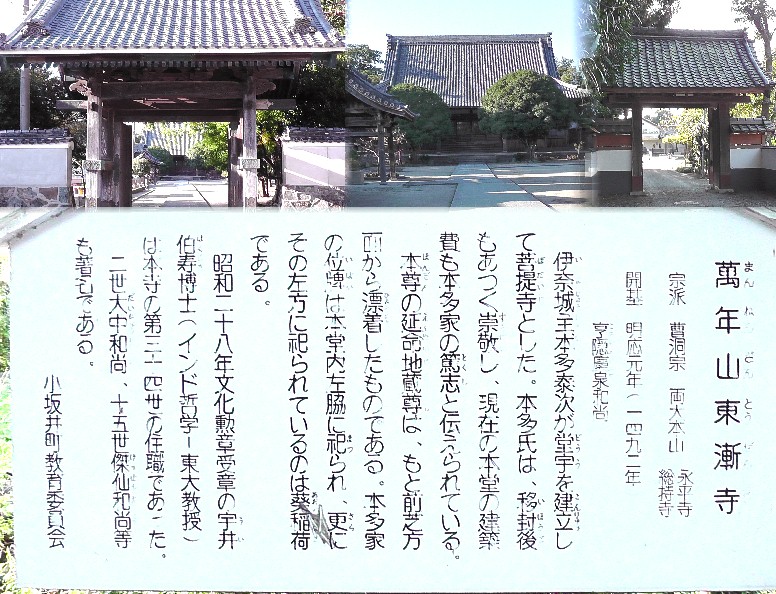 萬年山東漸寺
まんねんざんとうぜんじ
宗派 曹洞宗 両大本山 永平寺
総持寺
開基 明応元年(一四九二年
亨隠慶泉和尚
伊奈城主本多泰次が堂宇を建立し
て菩提寺とした。本多氏は、移封後
もあつく崇敬し、現在の本堂の建築
費も本多家の篤志と伝えられている。
本尊の延命地蔵尊は、もと前芝方
面から漂着したものである。本多家
の位牌は本堂内左脇に祀られ、更に
その左方に祀られているのは葵稲荷
である。
昭和二十八年文化勲章受章の宇井
伯寿博士(インド哲学ー東大教授)
は本寺の第三十四世の住職であった。
二世大中和尚、十五世傑仙和尚等
も著名である。
小坂井町教育委員会